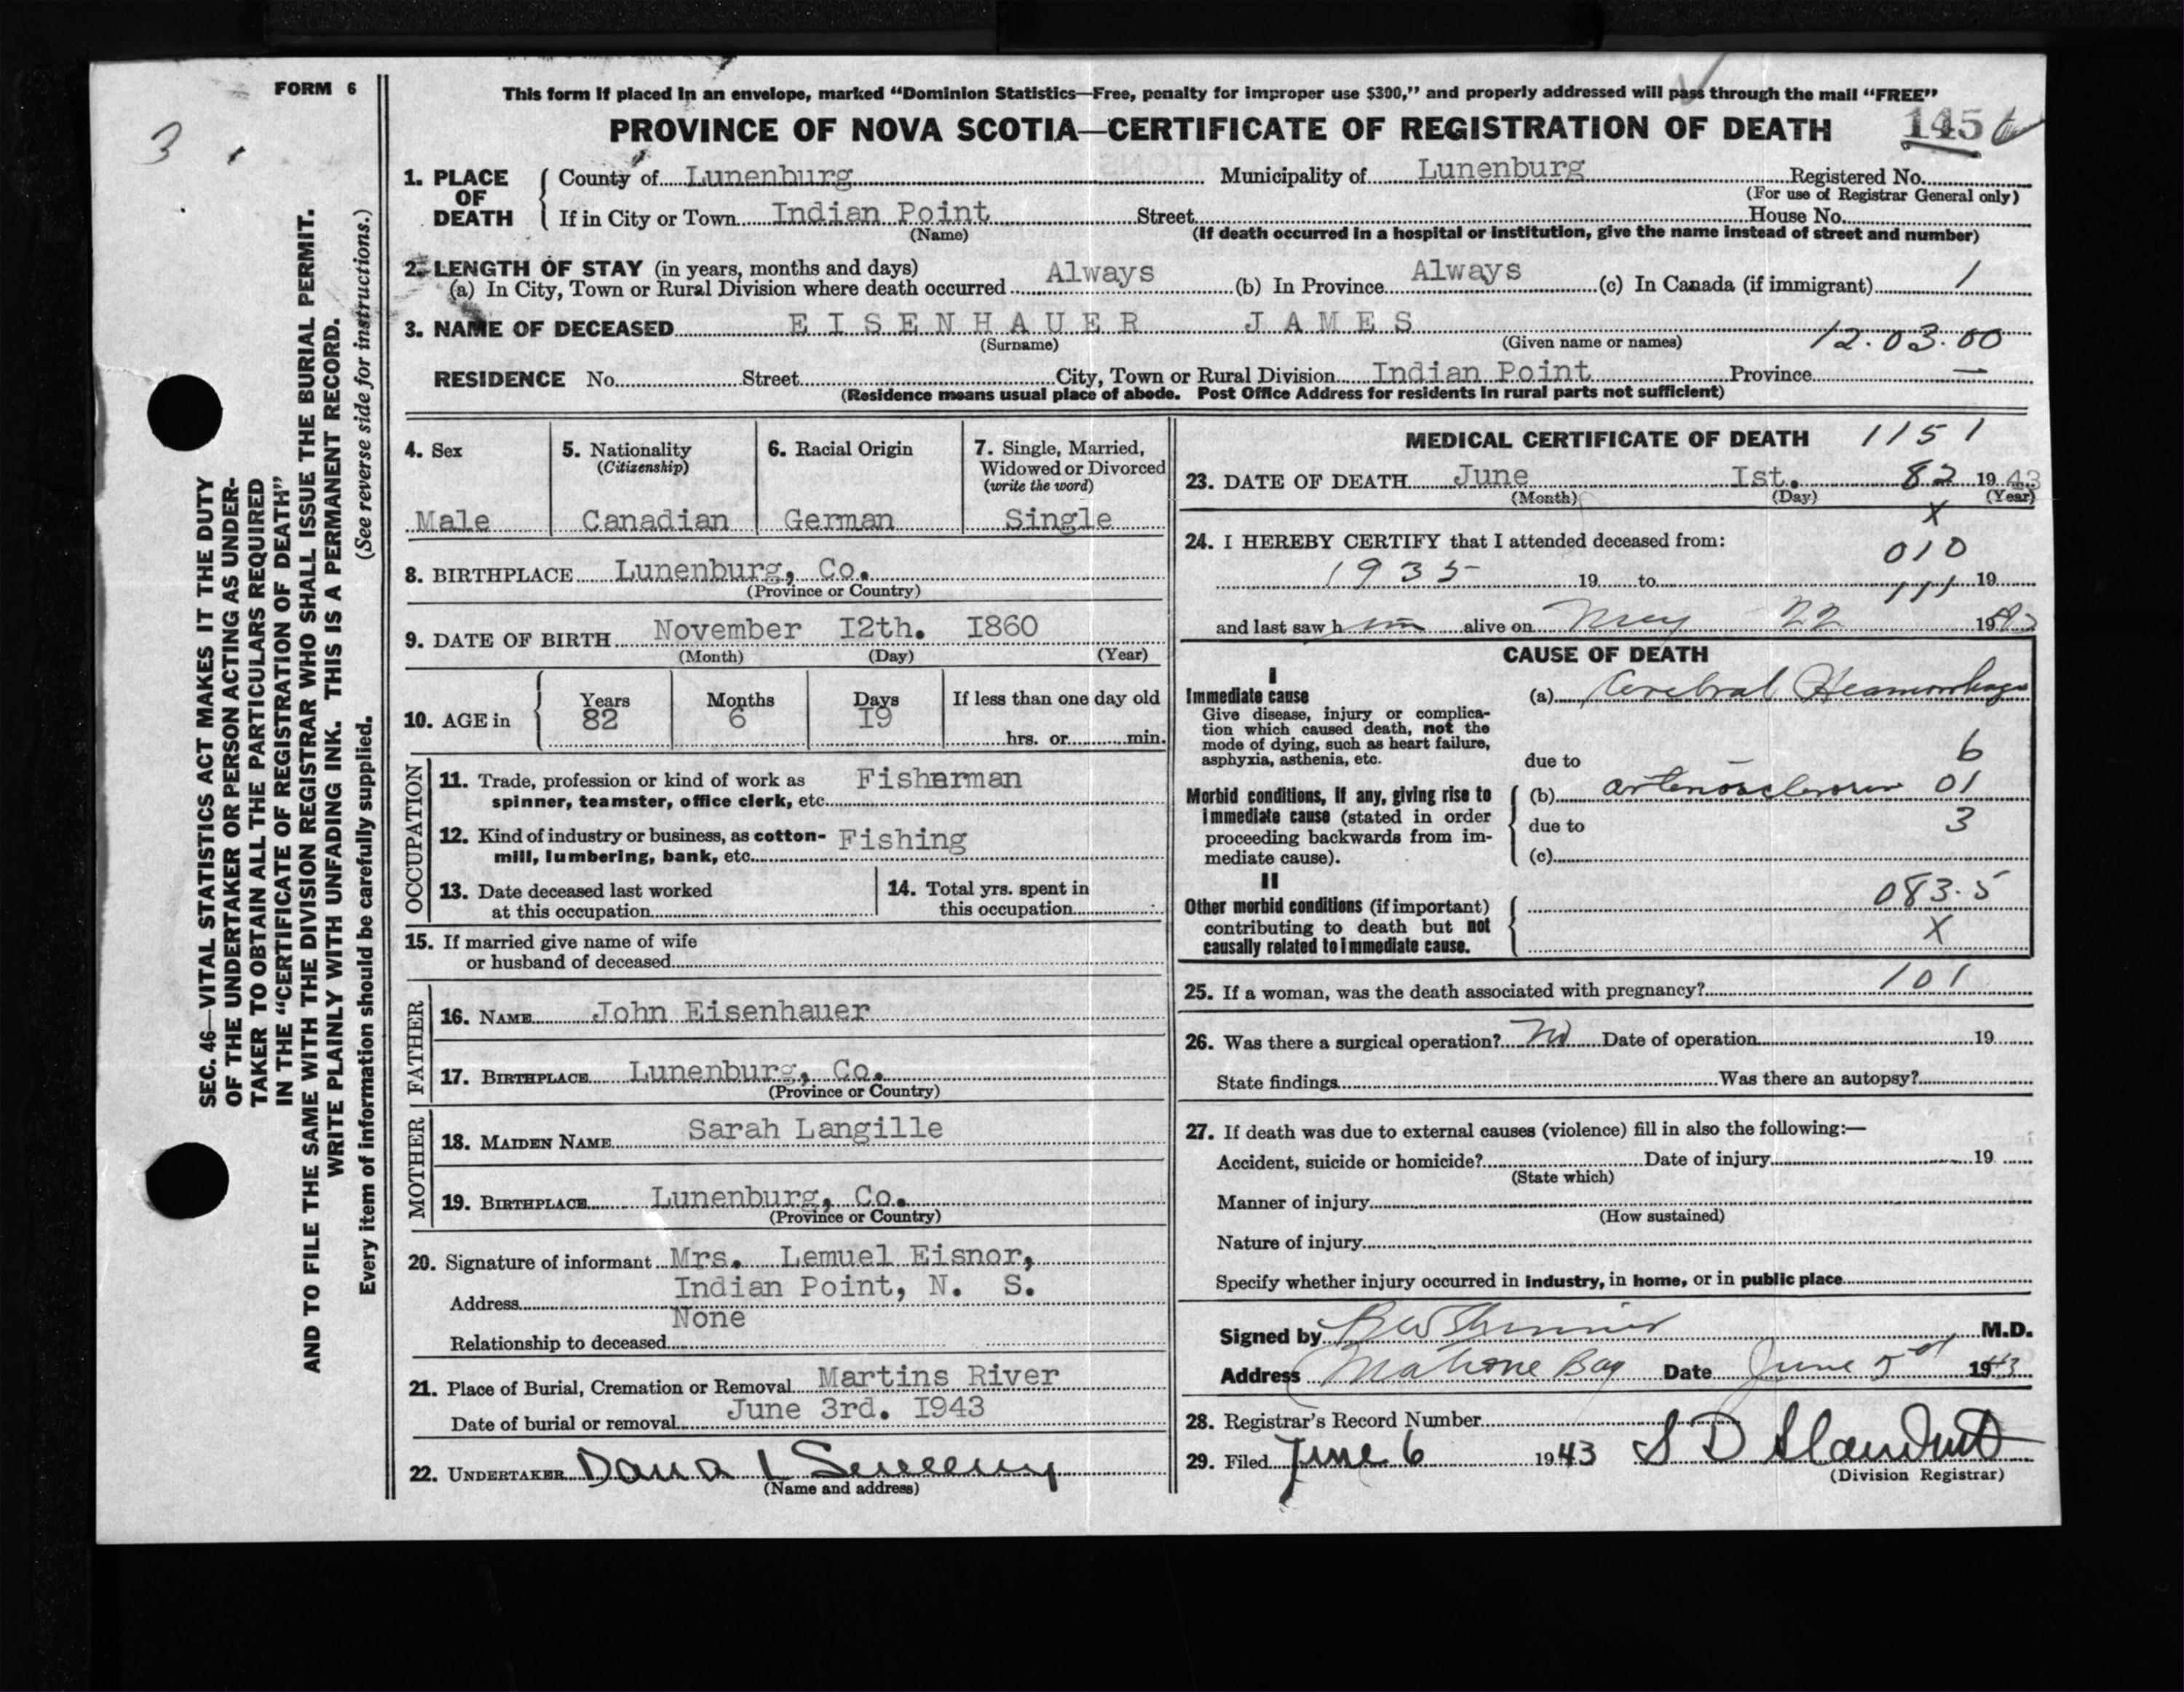 FORM 6
3
SEC. 46—VITAL STATISTICS ACT MAKES IT THE DUTY
OF THE UNDERTAKER OR PERSON ACTING AS UNDER-
TAKER TO OBTAIN ALL THE PARTICULARS REQUIRED
IN THE "CERTIFICATE OF REGISTRATION OF DEATH"
AND TO FILE THE SAME WITH THE DIVISION REGISTRAR WHO SHALL ISSUE THE BURIAL PERMIT.
WRITE PLAINLY WITH UNFADING INK. THIS IS A PERMANENT RECORD.
Every item of information should be carefully supplied. (See reverse side for instructions.)
This form if placed in an envelope, marked "Dominion Statistics—Free, penalty for improper use $300," and properly addressed will pass through the mail "FREE"
PROVINCE OF NOVA SCOTIA—CERTIFICATE OF REGISTRATION OF DEATH 145
1. PLACE OF DEATH
County of Lunenburg Municipality of Lunenburg Registered No.
(For use of Registrar General only)
If in City or Town Indian Point Street House No.
(Name) (If death occurred in a hospital or institution, give the name instead of street and number)
2. LENGTH OF STAY (in years, months and days)
(a) In City, Town or Rural Division where death occurred Always (b) In Province Always (c) In Canada (if immigrant) 1
3. NAME OF DECEASED EISENHAUER JAMES
(Surname) (Given name or names) 12.03.00
RESIDENCE No. Street City, Town or Rural Division Indian Point Province —
(Residence means usual place of abode. Post Office Address for residents in rural parts not sufficient)
4. Sex
Male
5. Nationality
(Citizenship)
Canadian
6. Racial Origin
German
7. Single, Married,
Widowed or Divorced
(write the word)
Single
8. BIRTHPLACE Lunenburg, Co.
(Province or Country)
9. DATE OF BIRTH November I2th. I860
(Month) (Day) (Year)
10. AGE in
Years Months Days If less than one day old
82 6 I9
hrs. or min.
OCCUPATION
11. Trade, profession or kind of work as Fisherman
spinner, teamster, office clerk, etc.
12. Kind of industry or business, as cotton- Fishing
mill, lumbering, bank, etc.
13. Date deceased last worked
at this occupation
14. Total yrs. spent in
this occupation
15. If married give name of wife
or husband of deceased
FATHER
16. NAME John Eisenhauer
17. BIRTHPLACE Lunenburg, Co.
(Province or Country)
MOTHER
18. MAIDEN NAME Sarah Langille
19. BIRTHPLACE Lunenburg, Co.
(Province or Country)
20. Signature of informant Mrs. Lemuel Eisnor,
Address Indian Point, N. S.
Relationship to deceased None
21. Place of Burial, Cremation or Removal Martins River
Date of burial or removal June 3rd. I943
22. UNDERTAKER Dana L Sweeny
(Name and address)
MEDICAL CERTIFICATE OF DEATH 1151
23. DATE OF DEATH June Ist. 82 1943
(Month) (Day) (Year)
X
24. I HEREBY CERTIFY that I attended deceased from:
010
1935 19 to 19
111
and last saw him alive on May 22 1943
CAUSE OF DEATH
I
Immediate cause
Give disease, injury or complica-
tion which caused death, not the
mode of dying, such as heart failure,
asphyxia, asthenia, etc.
(a) Cerebral Heamorrhage
due to 6
Morbid conditions, if any, giving rise to
immediate cause (stated in order
proceeding backwards from im-
mediate cause).
(b) arteriosclerosis 01
due to 3
(c)
II
Other morbid conditions (if important)
contributing to death but not
causally related to immediate cause.
083.5
X
25. If a woman, was the death associated with pregnancy? 101
26. Was there a surgical operation? No Date of operation 19
State findings Was there an autopsy?
27. If death was due to external causes (violence) fill in also the following:—
Accident, suicide or homicide? Date of injury 19
(State which)
Manner of injury
(How sustained)
Nature of injury
Specify whether injury occurred in industry, in home, or in public place
Signed by M.D.
Address Mahone Bay Date June 5 1943
28. Registrar's Record Number
29. Filed June 6 1943 S D
(Division Registrar)